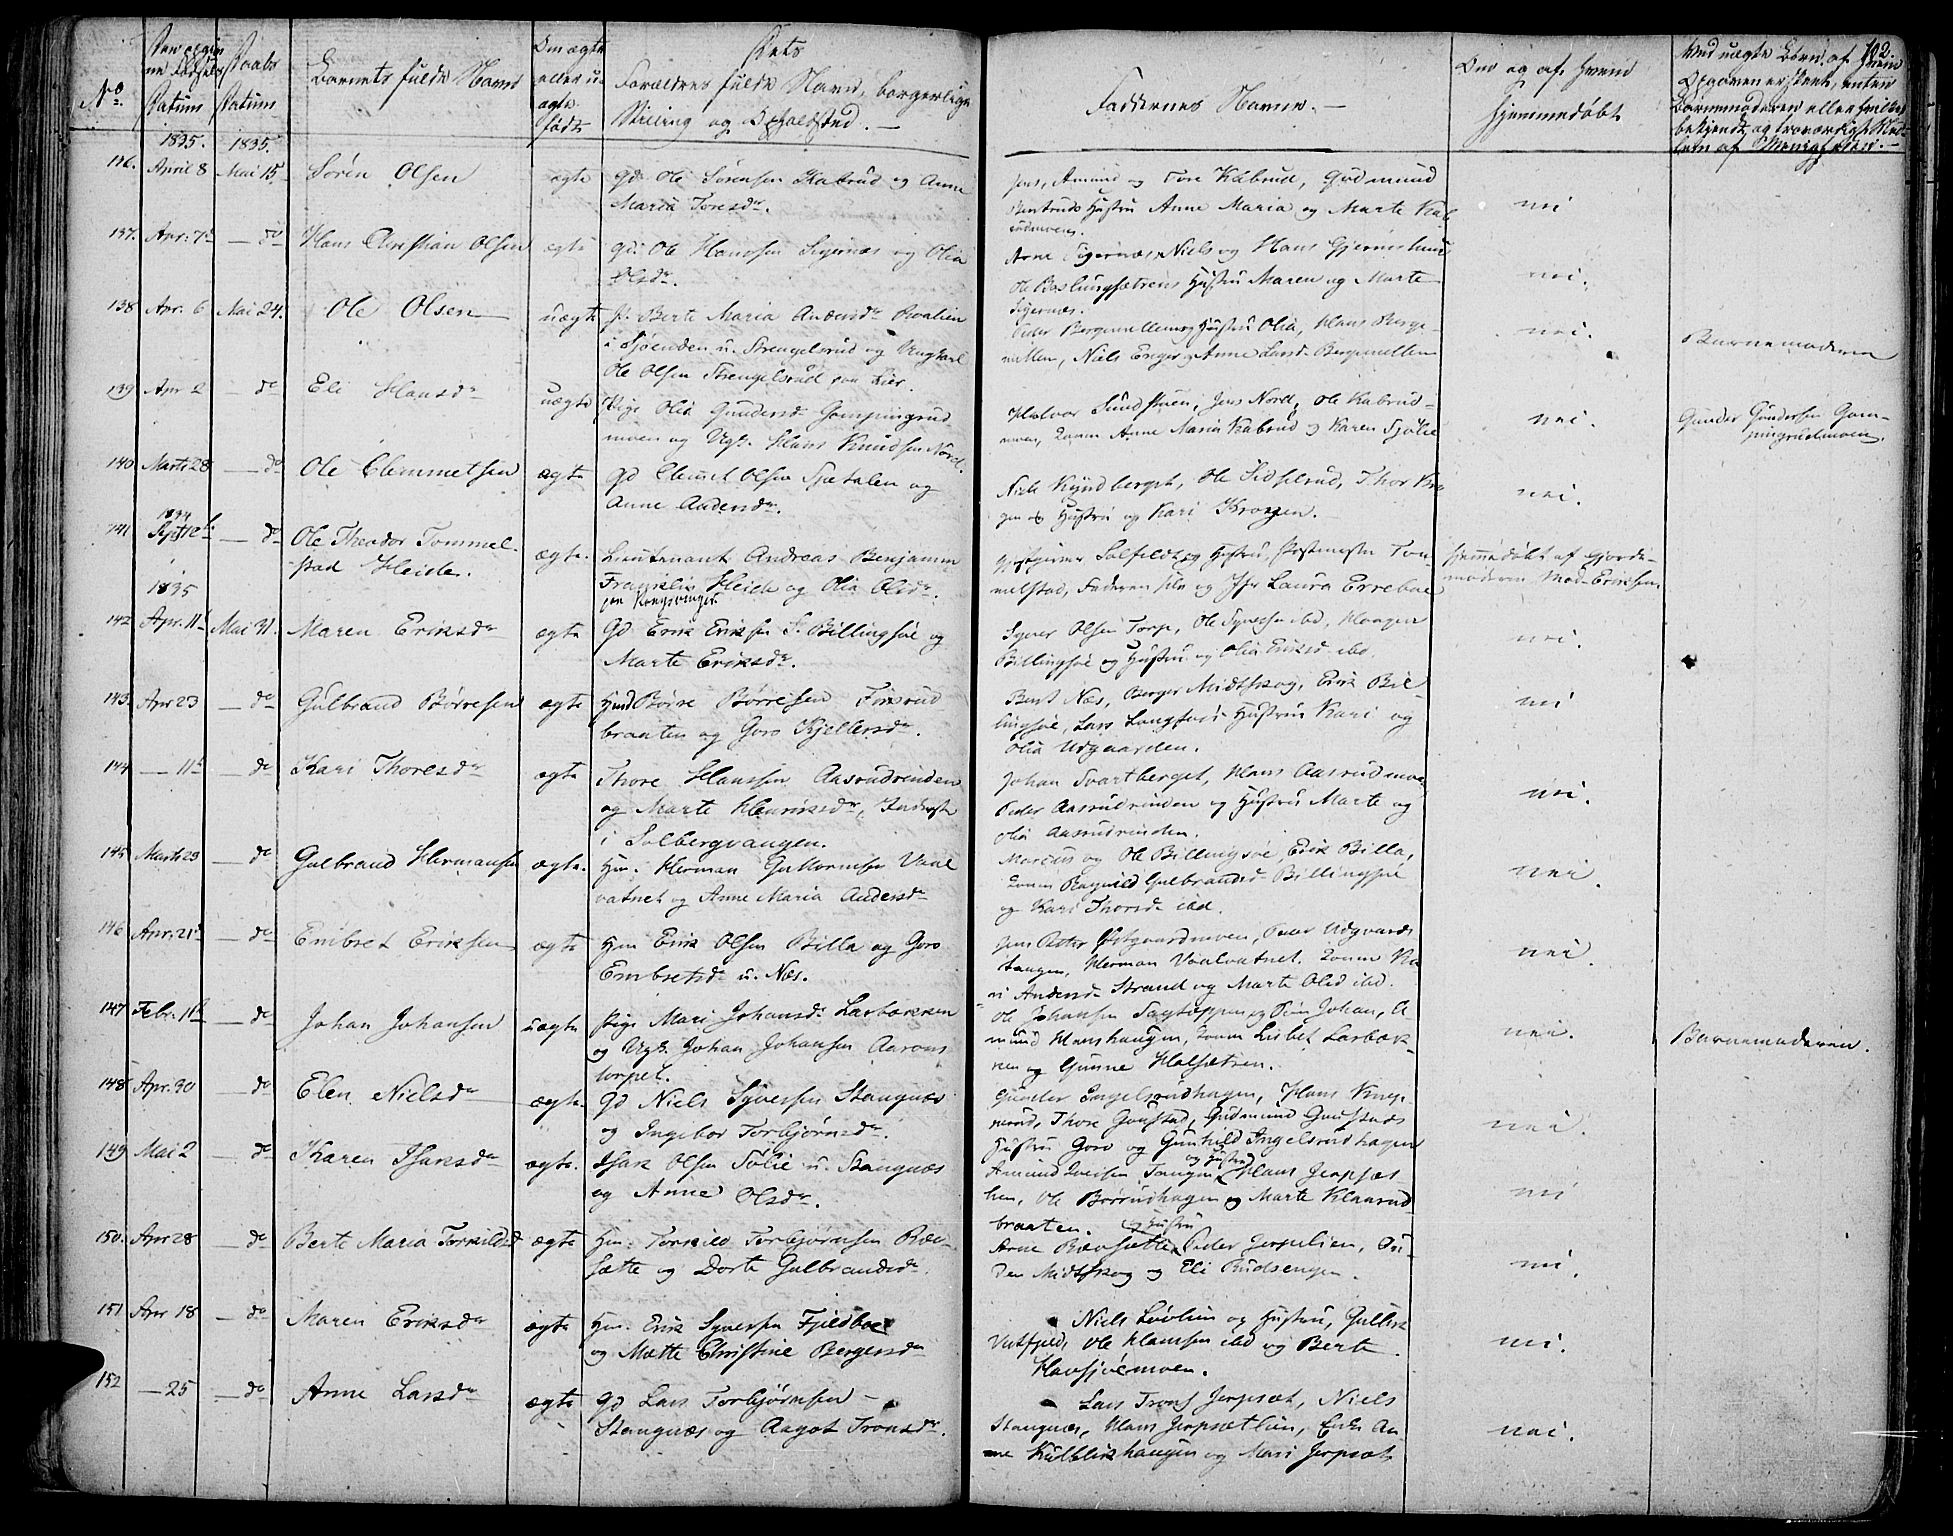 102.
No.
Datum
Daabs
Datum
Barnets fulde Navn
Om ægte
eller u-
ægte
født
Dets
Forældres fulde Navn, borgerlige
Stilling og Opholdsted. —
Faddernes Navne. —
Om og af hvem
hjemmedøbt
Ved uægte Børn, af hvem
Opgaven er skeet, enten
Barnemoderen eller
bekjendt, og troværdige
lem af Menigheden. —
1835. 1835.
146. April 8 Mai 15. Søren Olsen ægte Gd: Ole Sørensen Kabrud og Anne
Maria Toresdr.
Jens, Amund og Tore Kabrud, Gudmund
Hustru Anne Maria og Marte
nei
137. Apr. 7de — do Hans Christian Olsen ægte gd: Ole Hanssen Sigernæs og Olia
Olsdr.
Arne Sigernæs, Niels og Hans
Ole Baslungsætrens Hustru Maren og Marte
Sigernæs.
nei.
138 Apr. 6 Mai 24. Ole Olsen uægte p: Berte Maria Andersdr Roalien
i Sjøenden u. Strengelsrud og Ungkarl
Ole Olsen Strengelsrud paa Eier.
Peder Bergemellem og Hustru Olia, Hans Berge-
mellem, Niels Enger og Anne Larsd. Bergemellem
nei.
Barnemoderen
139 Apr 2 — do Eli Hansdr uægte Pige Olia Gundersd. Gampingrud
moen og Ugk. Hans Knudsen Nord.
Halvor Sundstuen, Jens Nord, Ole Kabrud-
moen, Konen Anne Maria Kabrud og Karen Sjølie
nei.
Gunder Gundersen Gam-
pingrudmoen.
140 Marts 28 — do Ole Clemmetsen ægte gd Clemet Olsen Sjætalen og
Anne Andersdr.
Niels Kyndberget, Ole Sidselrud, Thor
og Hustru og Kari Krogen. —
nei.
1834
141 Sept 12te — do Ole Theodor Tommel-
stad Heide. ægte. Lieutenant Andreas Benjamin
Franklin Heide og Olia Olsdr.
paa Kongsvinger.
Gjestgiver Solfeldt og Hustru, Postmester Tom-
melstad, Faderen selv og Jfr Laura Erreboe
hjemmedøbt af Gjorde-
moderen Mad. Eriksen.
1835
142 Apr. 11te Mai 31. Maren Eriksdr ægte Gd Erik Eriksen S. Billingsøe og
Marte Eriksdr.
Syver Olsen Torp, Ole Syversen ibd, Haagen
Billingsøe og Hustru og Olia Eriksd. ibd.
nei.
143. Apr 23 — do Gulbrand Børresen ægte Hmd Børre Børresen Finsrud
braaten og Goro Kjellersdr.
Bent Næs, Berger Midtskog, Erik Bil-
lingsøe, Lars Hustru Kari og
Olia Udgaarden.
nei
144 — 11te — do Kari Thoresdr ægte Thore Hanssen Aasrudrinden
og Marte Henriksdr, Inderste
i Solbergvangen.
Johan Svartberget, Hans Aasrudmoe
Peder Aasrudrinden og Hustru Marte og
Olia Aasrudrinden.
nei.
145 Marts 29 — do Gulbrand Hermansen ægte. Hm. Herman Guttormsen Vaal
vatnet og Anne Maria Andersdr
Marcus og Ole Billingsøe, Erik Billa,
Konen Ragnild Gulbrandsd. Billingsøe
og Kari Thorsd. ibd.
nei.
146 Apr. 21de — do Embret Eriksen ægte Hm Erik Olsen Billa og Goro
Embretsdr u. Næs.
Jens Østgaardmoen, Peder Udgaards
tangen, Herman Vaalvatnet. Konen Ka
ri Andersd. Strand og Marte Olsd ibd.
nei.
147 Febr. 11te — do Johan Johansen uægte Pige Mari Johansdr Larbækken
og Ugk. Johan Johansen Aarons
torpet.
Ole Johansen Sagtoppen og Søn Johan, A
mund Hanshaugen, Konen Lisbet Larbæk-
ken og Gunne Halsætren.
nei.
Barnemoderen.
148 Apr. 30 — do Elen Nielsdr ægte. Gd Niels Syversen Stangnæs
og Ingebor Torbjørnsdr.
Gunder Ingelsrudhagen, Hans Knap-
nrud, Thore Gaustad, Gudmund Gaustads
Hustru Goro og Gunhild Ingelsrudhagen
nei.
149 Mai 2 — do Karen Isaksdr ægte. Isak Olsen Sølie u. Stangnæs
og Anne Olsdr.
Amund Iversen Tangen og Hustru, Hans Jerpsæt
lien, Ole Børrudhagen og Marte Klanrud
braaten.
nei
150. Apr 28 — do Berte Maria Torkildsd ægte Hm. Torkild Torbjørnsen Ræv-
sætte og Dorte Gulbrandsdr.
Arne Rævsætte og Hustru, Peder Jerpelien, Gu-
Midtskog og Eli Rudsengen.
nei.
151 Apr 18 — do Maren Eriksdr ægte Hm. Erik Syversen Fjeldboe
og Mætte Christine Bergersdr
Niels Løvlien og Hustru, Gullik
Vestfjeld, Ole Hanssen ibd og Berte
Havsjøemoen.
nei.
152 — 25 — do Anne Larsdr ægte Gd Lars Torbjørnsen —
Stangnæs og Aagot Tronsdr.
Lars Trons Jerpsæt, Niels
Stangnæs, Hans Jerpsætlien, Enke An
ne Kulblikhaugen og Mari Jerpsæt
nei.